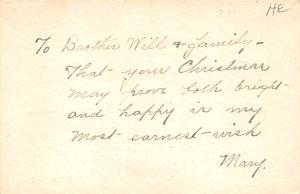 HE
To Brother Will & family -
That your Christmas
may prove both bright
and happy is my
most earnest wish
Mary.